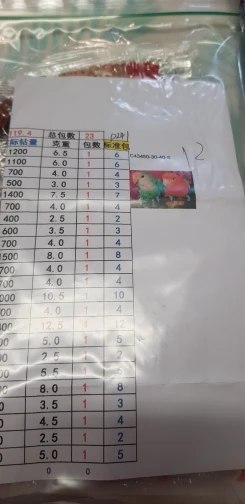 119.4 总包数 23 D21
际钻量 克重 包数 标准包
1200 6.5 1 6
1100 6.0 1 6
700 4.0 1 4
500 3.0 1 3
1400 7.5 1 7
700 4.0 1 4
400 2.5 1 2
600 3.5 1 3
700 4.0 1 4
1500 8.0 1 8
700 4.0 1 4
700 4.0 1 4
000 10.5 1 10
700 4.0 1 4
12.5 12
00 5.0 1 5
00 2.5 2
00 5.5 1
00 8.0 1 8
0 3.5 1 3
0 4.5 1 4
0 2.5 1 2
0 5.0 1 5
0 0
12